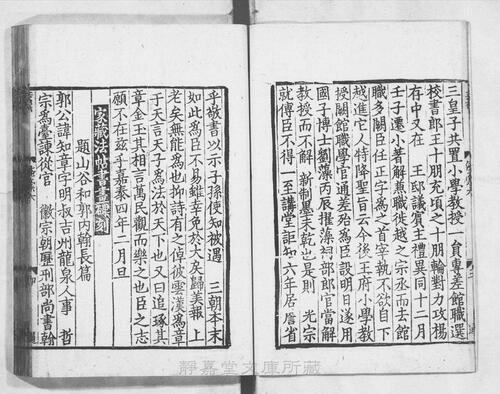 三皇子共置小學教授一員專差館職選
校書郎王十朋充頃之十朋輪對力攻楊
存中又在 王邸議賓主禮異同十二月
壬子遷小著解兼職徙越之宗丞而去館
職多闕臣任正字為之首宰執不欲自下
越進它人特降聖旨云今後王府小學教
授闕館職學官通差殆為臣設明日遂用
國子博士劉藻丙辰擢藻祠部郎官當解
教授而不解 新制學未乾也是則 光宗
就傅臣不得一至講堂詎知六年居詹省
乎敬書以示子孫使知被遇 三朝本末
如此為臣不易雖幸免於大戾歸美報上
老矣無能為也抑詩有之倬彼雲漢為章
于天言天子為法於天下也又曰追琢其
章金玉其相言萬民觀而樂之也臣之志
願不在兹乎嘉泰四年二月旦
家藏法帖書畫碑刻
題山谷和郭內翰長篇
郭公諱知章字明叔吉州龍泉人事 哲
宗為臺諫從官 徽宗朝歷刑部尚書翰
靜嘉堂文庫所藏